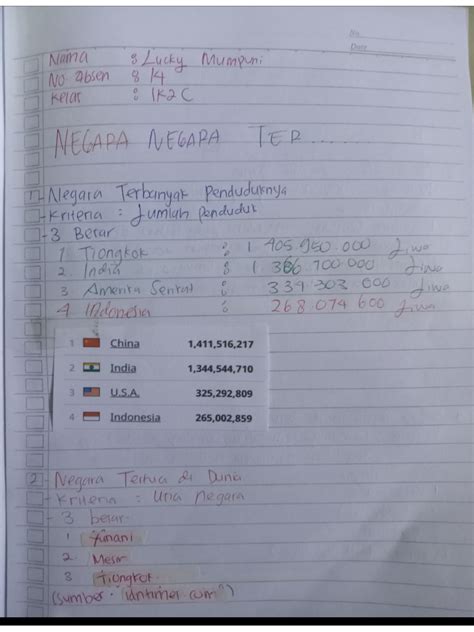 No
Date
Nama : Lucky Mumpuni
No Absen : 14
Kelas : 1K2C
NEGARA NEGARA TER.....
1. Negara Terbanyak Penduduknya
- Kriteria : Jumlah penduduk
- 3 Besar
1 Tiongkok : 1 405 950.000 Jiwa
2. India : 1 366 700 000 Jiwa
3 Amerika Serikat : 334 303 000 Jiwa
4 Indonesia : 268 074 600 Jiwa
1 China 1,411,516,217
2 India 1,344,544,710
3 U.S.A. 325,292,809
4 Indonesia 265,002,859
2 Negara Tertua di Dunia
- Kriteria : Usia Negara
- 3 besar
1 Yunani
2. Mesir
3 Tiongkok
(Sumber : idntimes.com)